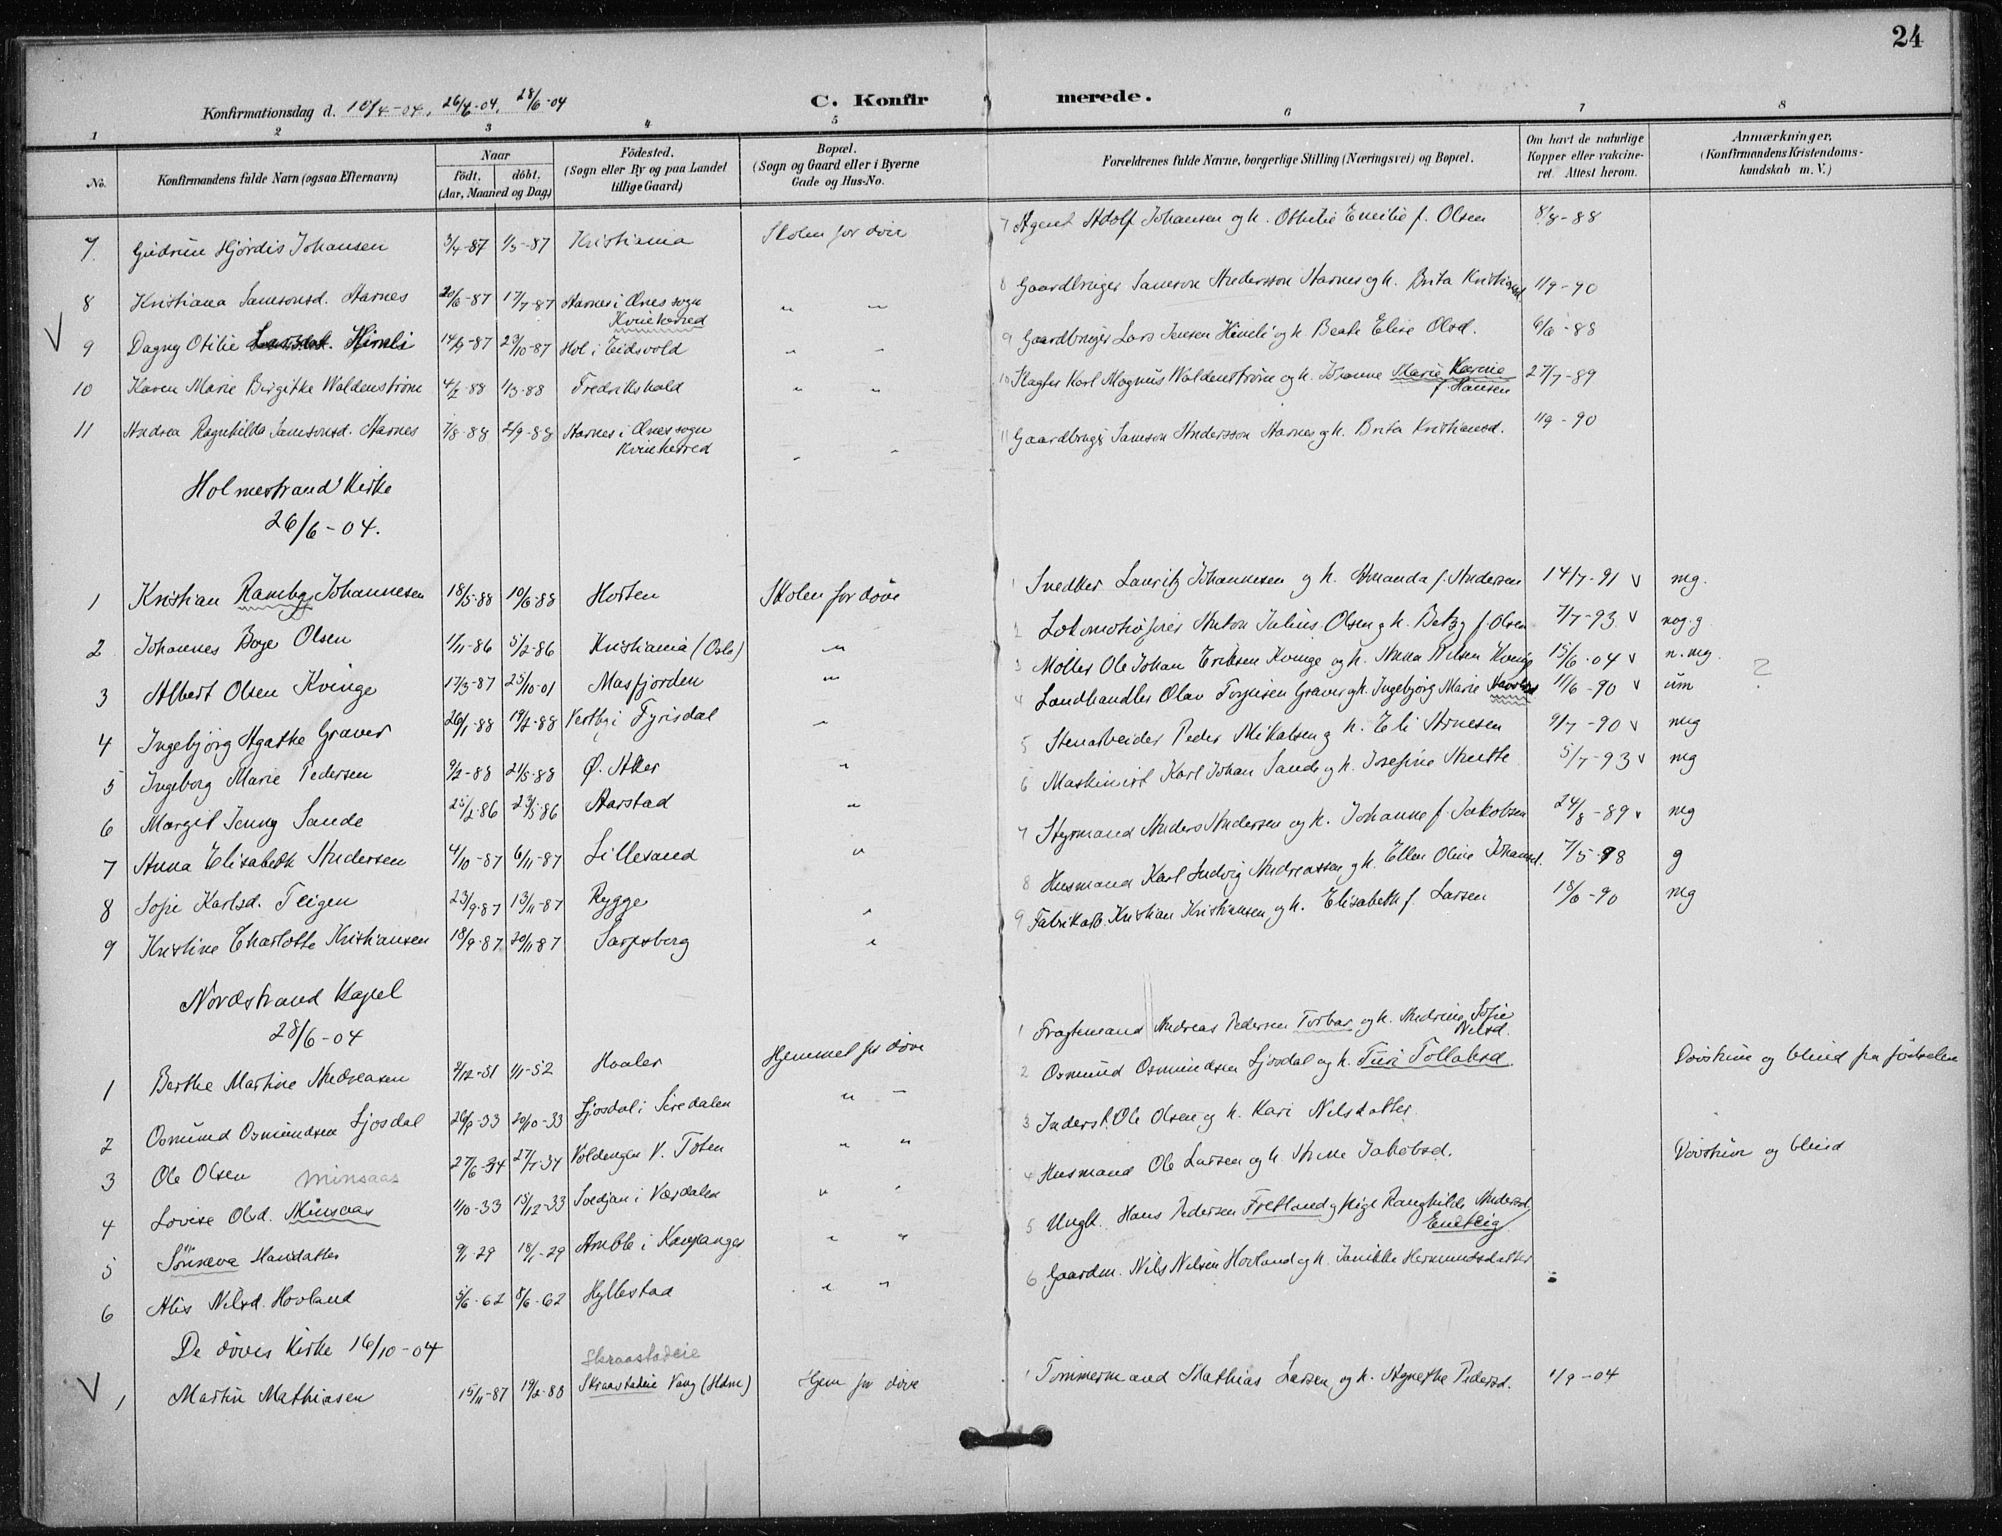 24
Konfirmationsdag d. 10/4-04, 26/6-04, 28/6-04
C. Konfirmerede.
1 2 3 4 5 6 7 8
No. Konfirmandens fulde Navn (ogsaa Efternavn)
Naar födt. döbt. (Aar, Maaned og Dag)
Födested. (Sogn eller By og paa Landet tillige Gaard)
Bopæl. (Sogn og Gaard eller i Byerne Gade og Hus-No.
Forældrenes fulde Navne, borgerlige Stilling (Næringsvei) og Bopæl.
Om havt de naturlige Kopper eller vakcineret. Attest herom.
Anmærkninger. (Konfirmandens Kristendomskundskab m. V.)
7 Gudrun Hjördis Johansen 3/4-87 1/5-87 Kristiania Skolen for döve 7 Agent Adolf Johansen og h. Othilie Emilie f. Olsen 8/8-88
8 Kristiana Samsonsd. Aarnes 20/6-87 17/7-87 Aarnes i Ænes sogn Kvinherred " " 8 Gaardbruger Samson Andersson Aarnes og h. Brita Kristiansd. 11/9-90
V 9 Dagny Otilie Himli 23/10-87 Hol i Eidsvold " " 9 Gaardbruger Lars Jensen Himli og h. Beate Elise Olsd. 6/6-88
10 Karen Marie Birgitte Waldenström 4/2-88 1/3-88 Fredrikshald " " 10 Slagter Karl Magnus Waldenström og h. Johanne Marie Karine f. Hansen 27/7-89
11 Andrea Ragnhilda Samsonsd. Aarnes 7/8-88 2/9-88 Aarnes i Ænes sogn Kvinherred " " 11 Gaardbruger Samson Andersson Aarnes og h. Brita Kristiansd. 11/9-90
Holmestrand Kirke
26/6-04.
1 Kristian Ramberg Johannesen 18/5-88 10/6-88 Horten Skolen for döve 1 Snedker Lauritz Johannesen og h. Amanda f. Andersen 14/7-91 v mg.
2 Johannes Boye Olsen 1/11-86 5/2-86 Kristiania (Oslo) " 2 Lokomotivförer Anton Julius Olsen og h. Betzy f. Olsen 7/7-93 v nog. g
3 Albert Olsen Kvinge 17/3-87 25/10-01 Masfjorden " 3 Möller Ole Johan Eriksen Kvinge og h. Anna Nilsen Kvinge 15/6-04 v n. mg. ?
4 Ingebjörg Agathe Graver 26/1-88 19/2-88 Fyrisdal " 4 Landhandler Olav Torjusen Graver og h. Ingebjörg Marie 11/6-90 v um
5 Ingeborg Marie Pedersen 9/2-88 21/5-88 Ø. Aker " 5 Stenarbeider Peder Mikalsen og h. Eli Arnesen 9/7-90 v mg
6 Margit Jenny Sande 25/2-86 23/5-86 Aarstad " 6 Maskinist Karl Johan Sande og h. Josefine Anette 5/7-93 v mg
7 Anna Elisabeth Andersen 4/10-87 6/11-87 Lillesand " 7 Styrmand Anders Andersen og h. Johanne f. Jakobsen 24/8-89 v mg
8 Sofie Karlsd. Teigen 23/9-87 13/11-87 Rygge " 8 Husmand Karl Ludvig Andreassen og h. Ellen Oline Johansd. 7/5-98 g
9 Kristine Charlotte Kristiansen 18/9-87 20/11-87 Sarpsborg " 9 Fabrikarb. Kristian Kristiansen og h. Elisabeth f. Larsen 18/6-90 mg
Nordstrand Kapel
28/6-04
1 Berthe Martine Andreasen 2/12-51 1/1-52 Hvaler Hjemmet for döve 1 Fragtmand Andreas Pedersen Torbar og h. Andrine Sofie Nilsd. Dövstum og blind fra födselen
2 Osmund Osmundsen Ljosdal 20/10-33 Ljosdal i Siredalen " " 2 Osmund Osmundsen Ljosdal og h. Turi Tollaksd.
3 Ole Olsen 27/6-34 27/7-34 V. Toten " " 3 Inderst Ole Olsen og h. Kari Nilsdatter. Dövstum og blind
Minsaas
4 Lovise Olsd. Minsaas 1/10-33 15/12-33 Svedjan i Værdalen " " 4 Husmand Ole Larsen og h. Anne Jakobsd.
5 Sönneva Hansdatter 9/1-29 18/1-29 Amble i Kaupanger " " 5 Ungk. Hans Pedersen Fretland og Pige Ranghilde Andersd. Endtlig
6 Alis Nilsd. Hovland 5/6-62 8/6-62 Hyllestad " " 6 Gaardm. Nils Nilsen Hovland og h. Janikke Hermundsdatter
De döves Kirke 16/10-04
Skraastadeie
V 1 Martin Mathiasen 15/11-87 19/2-88 Skraastadeie Vang (Hdm) Hjem for döve 1 Tömmermand Mathias Larsen og h. Agnethe Pedersd. 1/9-04